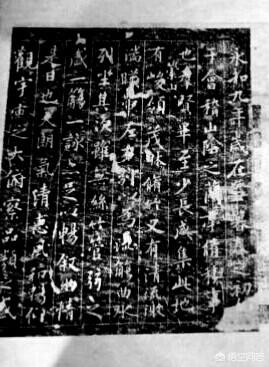 永和九年歲在癸丑暮春之初
會稽山陰之蘭亭脩禊事
也羣賢畢至少長咸集此地
有崇山峻領茂林脩竹又有清流激
湍暎帶左右引以為流觴曲水
列坐其次雖無絲竹管弦之
盛一觴一詠亦足以暢敘幽情
是日也天朗氣清惠風和暢仰
觀宇宙之大俯察品類之盛
悟空问答